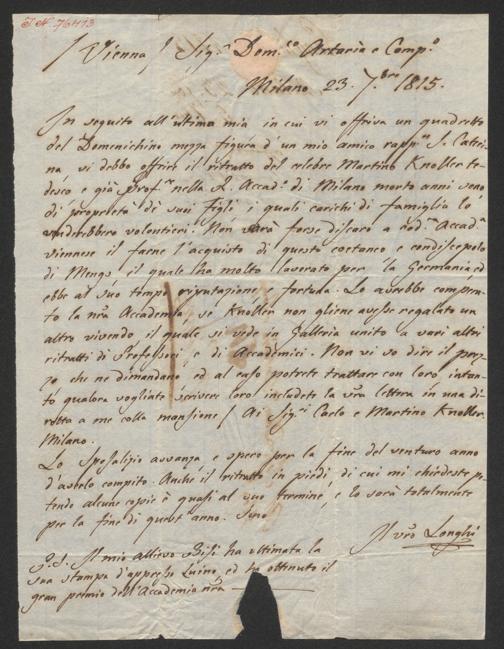 I.N. 76413
/ Vienna / Sig.r Dom.co Artaria e Comp.o
Milano 23. 7.bre 1815.
In seguito all'ultima mia in cui vi offriva un quadretto
del Domenichino mezza figura d'un mio amico rapp.te S. Cateri-
na, vi debbo offrire il ritratto del celebre Martino Knoller te-
desco e già Prof.re nella R. Accad.a di Milano morto anni sono
di proprietà de' suoi figli i quali carichi di famiglia lo
venderebbero volontieri. Non sarà forse discaro a Accad.a
viennese il farne l'acquisto di questo coetaneo e condiscepolo
di Mengs, il quale ha molto lavorato per la Germania ed
ebbe al suo tempo riputazione e fortuna. Lo avrebbe compra-
to la nra Accademia se Knoller non gliene avesse regalato un
altro vivendo il quale si vede in Galleria unito a vari altri
ritratti di Professori, e di Accademici. Non vi so dire il prez-
zo chi ne dimandano, ed al caso potrete trattare con loro intan-
to qualora vogliate scrivere loro includete la vra lettera in una di-
retta a me colla mansione / Ai Sig.ri Carlo e Martino Knoller
Milano.
Lo Sposalizio avvanza e spero per la fine del venturo anno
d'averlo compito. Anche il ritratto in piedi di cui mi chiedeste po-
tendo alcune copie è quasi al suo termine, e lo sarà totalmente
per la fine di quest'anno. Sono
Il vro Longhi
P.S. Il mio allievo Bisi ha ultimata la
sua stampa d'appresso Luino, ed ha ottenuto il
gran premio dell'Accademia nra